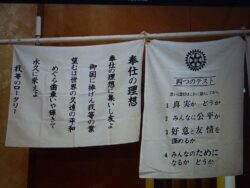 奉仕の理想
奉仕の理想に集いし友よ
御国に捧げん我等の業
望むは世界の久遠の平和
めぐる歯車いや輝きて
永久に栄えよ
我等のロータリー
四つのテスト
1 真実か どうか
2 みんなに公平か
3 好意と友情を
深めるか
4 みんなのために
なるか どうか